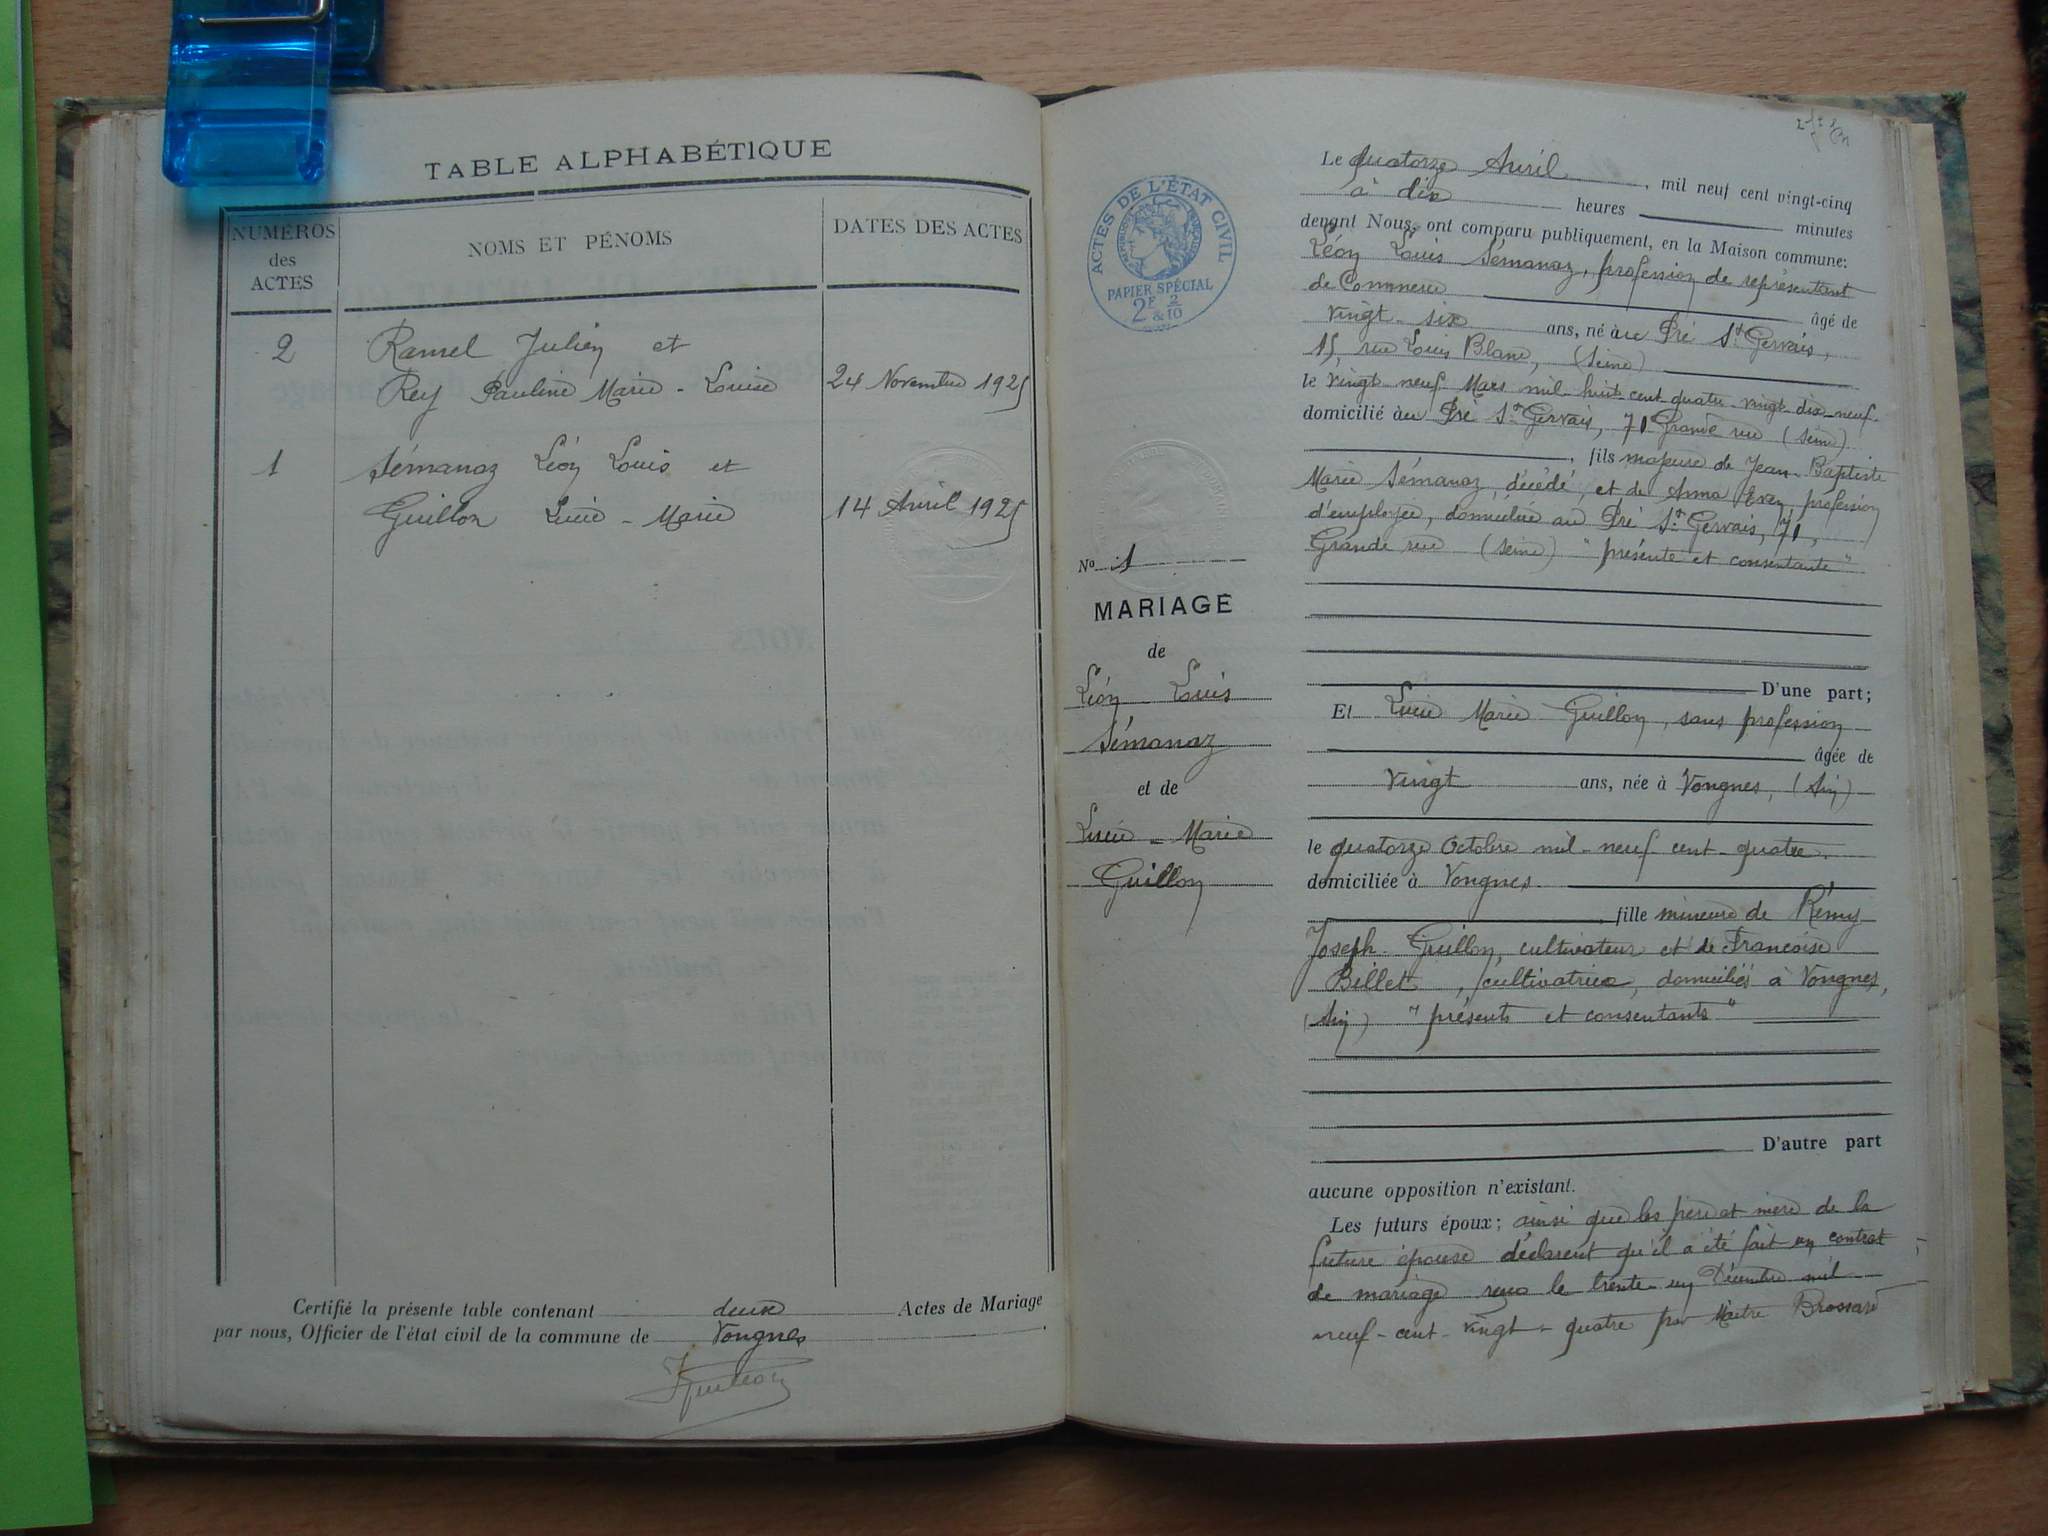 TABLE ALPHABÉTIQUE
NUMÉROS
des
ACTES
NOMS ET PÉNOMS
DATES DES ACTES
2
Ramel Julien et
Rey Pauline Marie-Louise
24 Novembre 1925
1
Sémanaz Léon Louis et
Guillon Lucie-Marie
14 Avril 1925
Certifié la présente table contenant deux Actes de Mariage
par nous, Officier de l'état civil de la commune de Vongnes
ACTES DE L'ÉTAT CIVIL
PAPIER SPÉCIAL
2F & 2/10
No 1
MARIAGE
de
Léon Louis
Sémanaz
et de
Lucie-Marie
Guillon
Le quatorze Avril, mil neuf cent vingt-cinq
à dix heures minutes
devant Nous, ont comparu publiquement, en la Maison commune:
Léon Louis Sémanaz, profession de représentant
de Commerce âgé de
vingt-six ans, né au Pré St Gervais,
15, rue Louis Blanc, (Seine)
le vingt neuf Mars mil huit cent quatre vingt dix-neuf
domicilié au Pré St Gervais, 71 Grande rue (Seine)
, fils majeur de Jean-Baptiste
Marie Sémanaz, décédé, et de Anna, profession
d'employée, domiciliée au Pré St Gervais, 71,
Grande rue (Seine) "présente et consentante"
D'une part;
Et Lucie Marie Guillon, sans profession
âgée de
vingt ans, née à Vongnes, (Ain)
le quatorze Octobre mil-neuf cent-quatre.
domiciliée à Vongnes.
, fille mineure de Rémy
Joseph Guillon, cultivateur et de Francoise
Billet, cultivatrice, domiciliés à Vongnes,
(Ain) "présents et consentants"
D'autre part
aucune opposition n'existant.
Les futurs époux; ainsi que les père et mère de la
future épouse déclarent qu'il a été fait un contrat
de mariage reçu le trente-un Décembre mil
neuf-cent-vingt-quatre par Maître Brossard